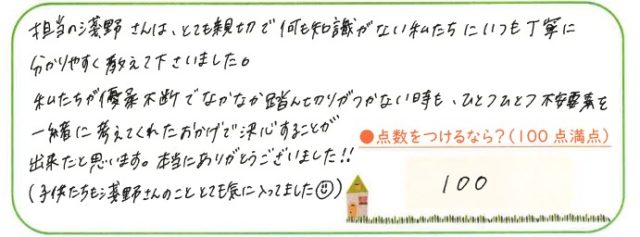 担当の濱野さんは、とても親切で何も知識がない私たちにいつも丁寧に
分かりやすく教えて下さいました。
私たちが優柔不断でなかなか踏ん切りがつかない時も、ひとつひとつ不安要素を
一緒に考えてくれたおかげで決心することが
出来たと思います。本当にありがとうございました!!
(子供たちも濱野さんのこととても気に入ってました☺))
●点数をつけるなら?(100点満点)
100